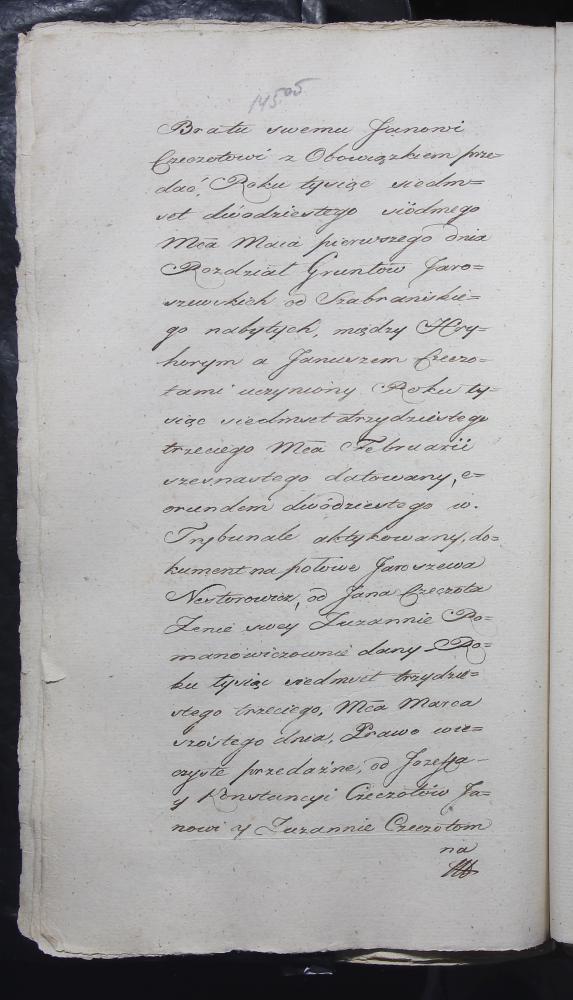 145.
Bratu swemu Janowi
Czeczotowi z Obowiązkiem prze=
dać, Roku tysiąc siedm=
set dwódziestego siódmego
Mca Maia pierwszego dnia
Rozdział Gruntów Jaro=
szewskich od Szabrańskie=
go nabytych, między Hry=
horym a Januszem Czeczo=
tami uczyniony Roku ty=
siąc siedmset trzydziestego
trzeciego Mca Februarii
szesnastego datowany, e=
orundem dwódziestego w.
Trybunale aktykowany, do=
kument na połowe Jaroszewa
Nestorowicz, od Jana Czeczota
Żenie swey Zuzannie Ro=
manowiczownie dany, Ro=
ku tysiąc siedmset trzydzie=
stego trzeciego, Mca Marca
szóstego dnia, Prawo wie=
czyste przedażne, od Jozeffa
y Konstancyi Czeczotów Ja=
nowi y Zuzannie Czeczotom
na